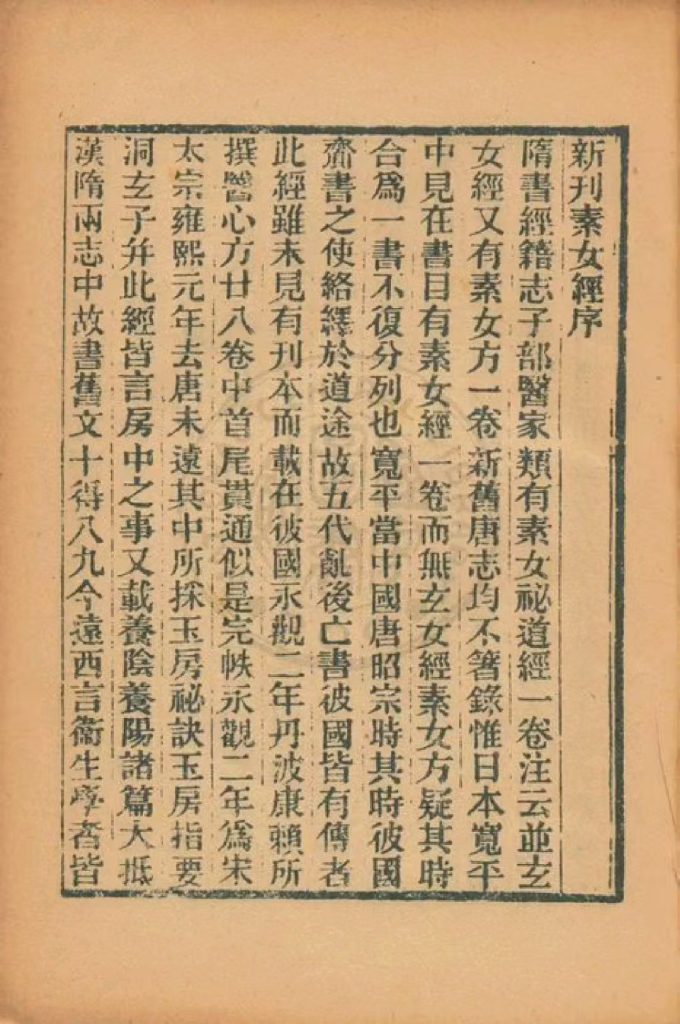 新刊素女經序
隋書經籍志子部醫家類有素女祕道經一卷注云並玄
女經又有素女方一卷新舊唐志均不箸錄惟日本寬平
中見在書目有素女經一卷而無玄女經素女方疑其時
合爲一書不復分列也寬平當中國唐昭宗時其時彼國
齎書之使絡繹於道途故五代亂後亡書彼國皆有傳者
此經雖未見有刊本而載在彼國永觀二年丹波康賴所
撰醫心方廿八卷中首尾貫通似是完帙永觀二年爲宋
太宗雍熙元年去唐未遠其中所採玉房祕訣玉房指要
洞玄子幷此經皆言房中之事又載養陰養陽諸篇大抵
漢隋兩志中故書舊文十得八九今遠西言衞生學者皆